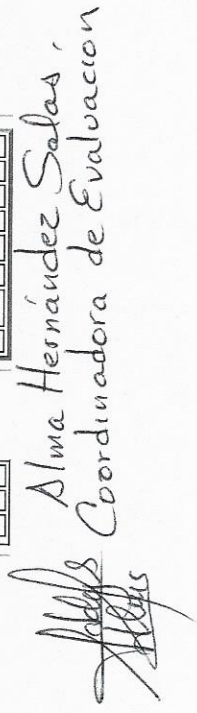 Alma Hernández Salas.
Coordinadora de Evaluación